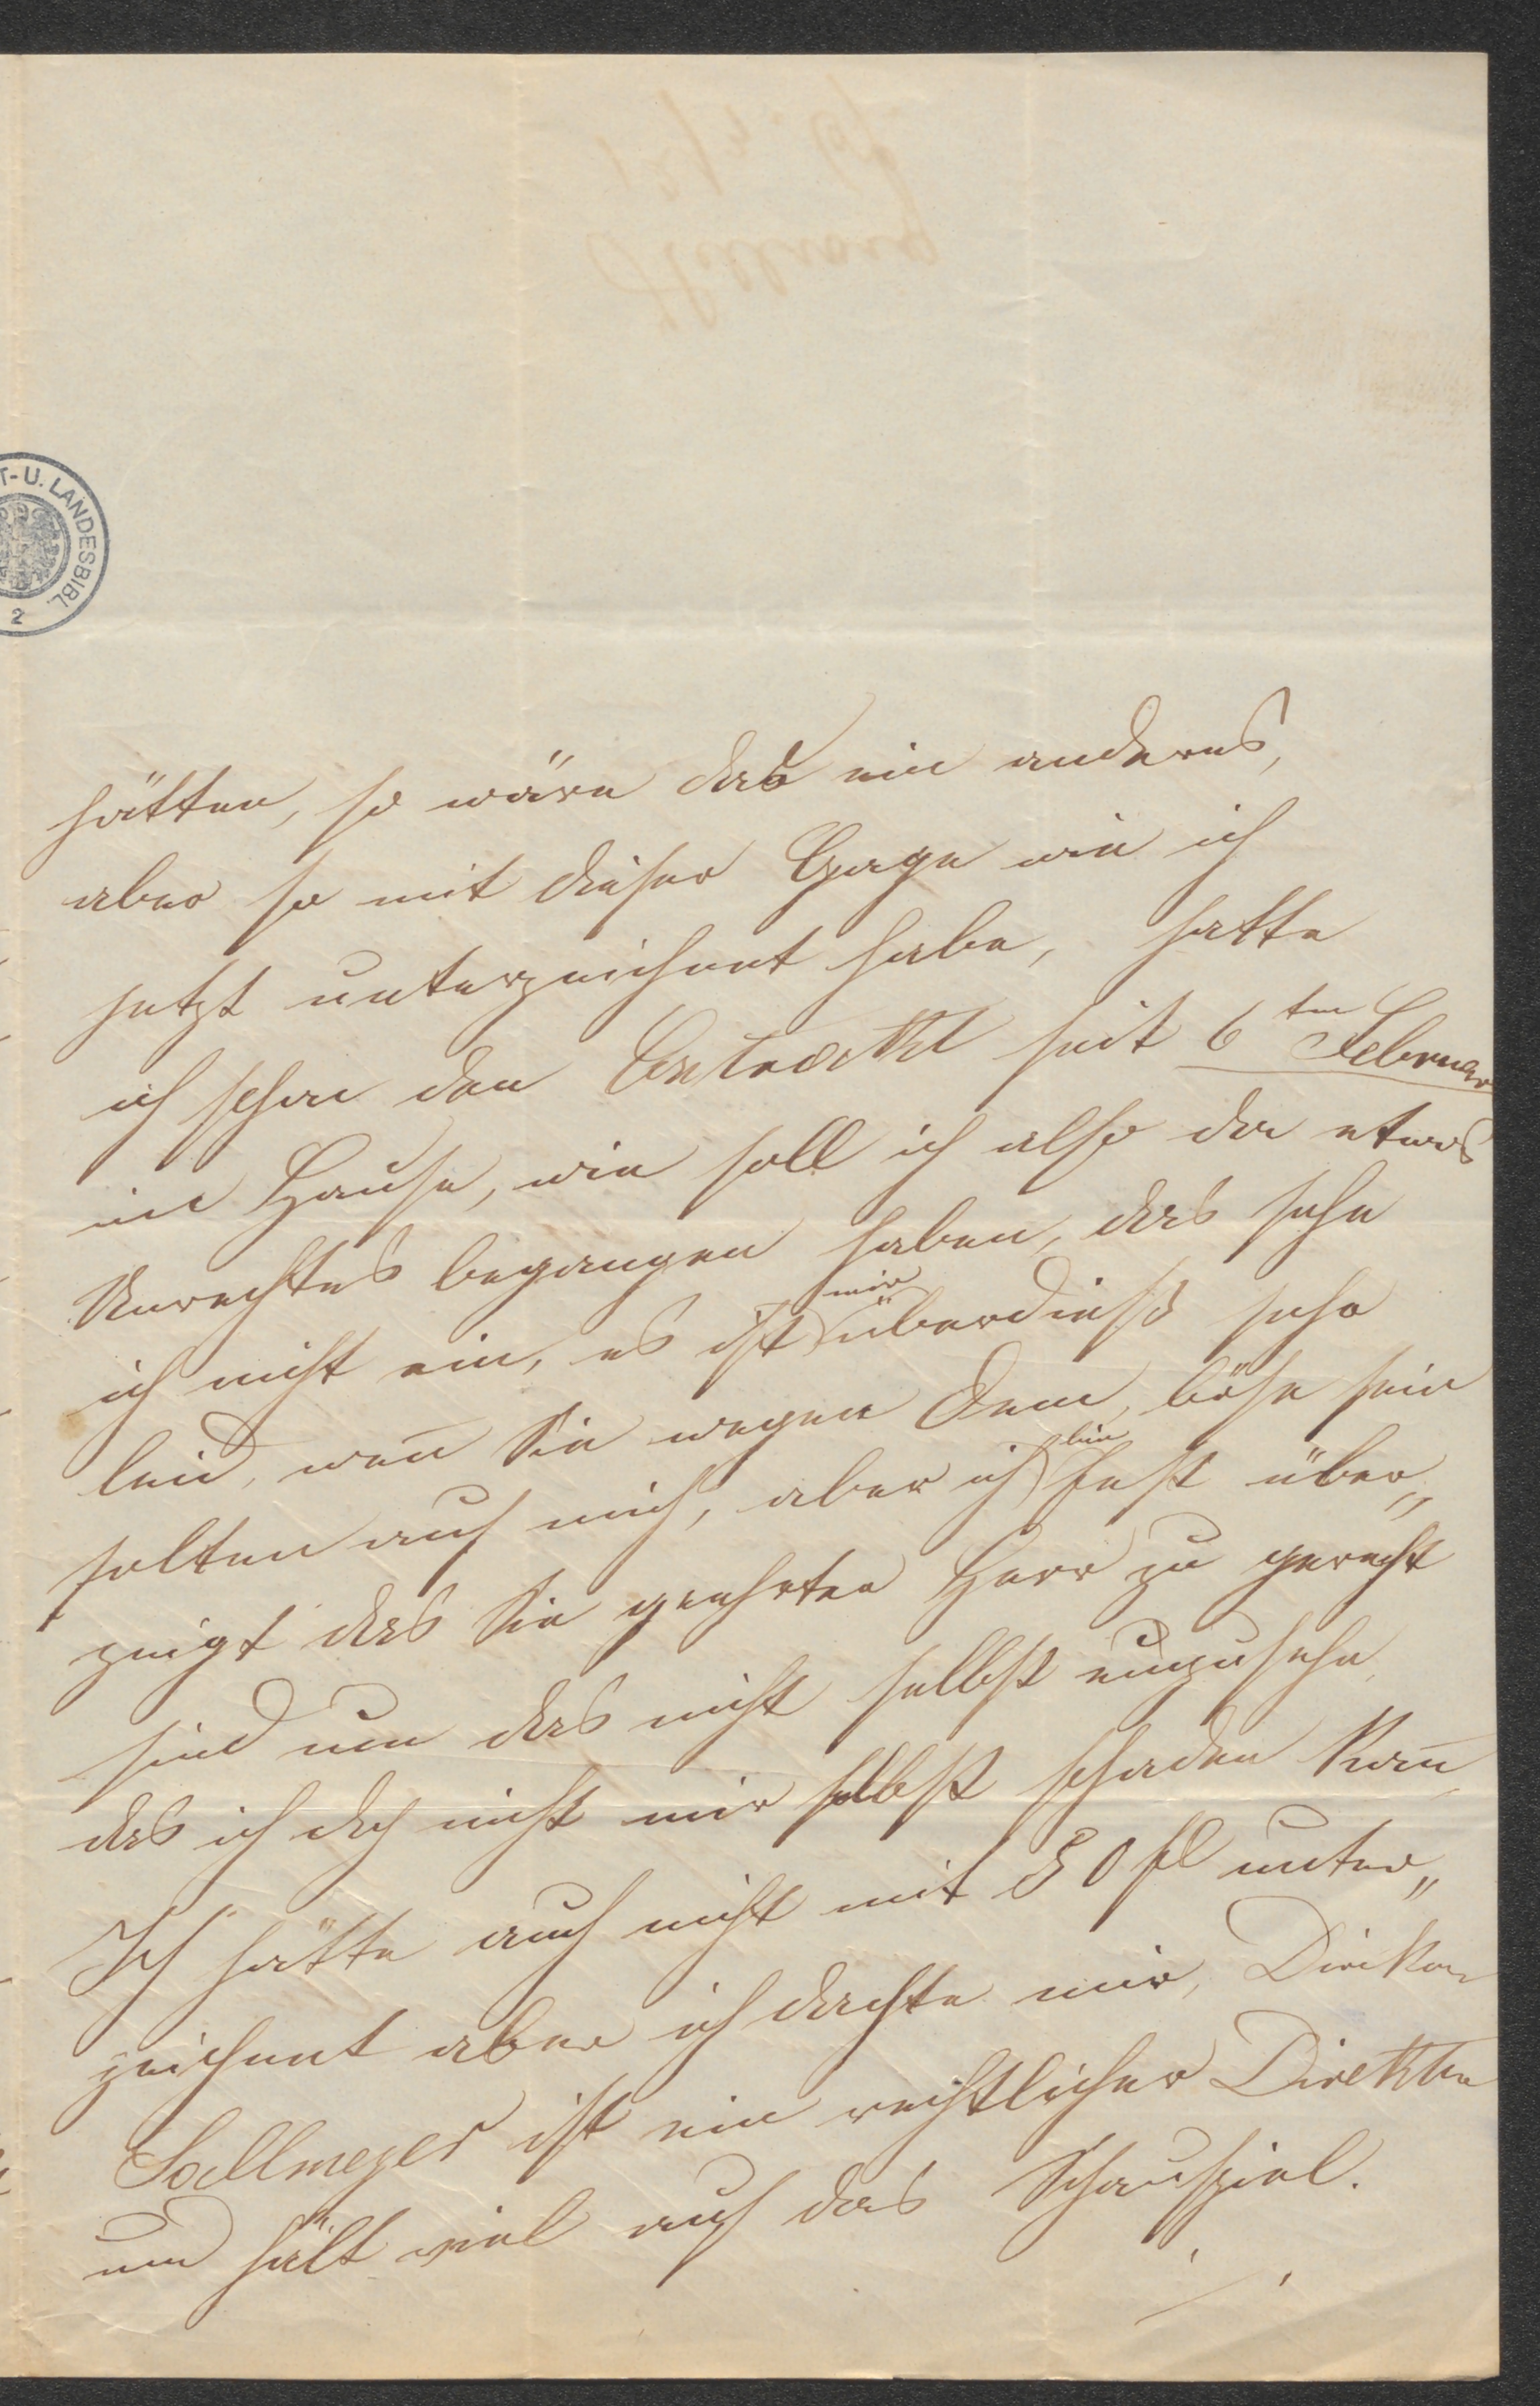 T-U. LANDESBIBL.
2
hätten, so wäre das ein anderes,
aber so mit dieser Gage wie ich
jetzt unterzeichnet habe, hatte
ich schon den Contract seit 6ten Februar
im Hause, wie soll ich also da etwas
Unrechtes begangen haben, das sehe
ich nicht ein, es ist mir überdieß sehr
leid, wen̄ Sie wegen dem böse sein
solten auf mich, aber ich bin fest über„
zeigt das Sie geehrter Herr zu gerecht
sind um das nicht selbst einzusehn
das ich doch nicht mir selbst schaden kan̄
Ich hätte auch nicht mit 80 fl unter„
zeichnet aber ich dachte mir, Direktor
Sallmeyer ist ein rechtlicher Direktor
und hält viel auf das Schauspiel.